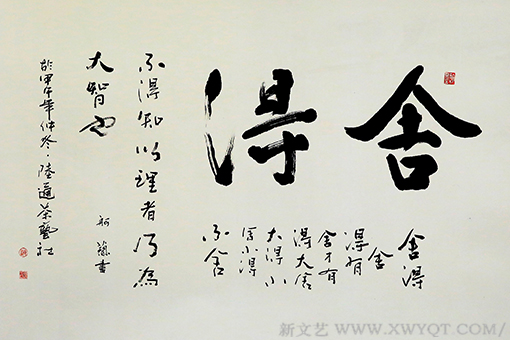 舍得
舍得
舍
得有
舍才有
得大舍
大得小
舍小得
不舍
不得知此理者乃為
大智也
書
於甲午年仲冬·陸 茶藝社
新文艺 WWW.XWYQT.COM/